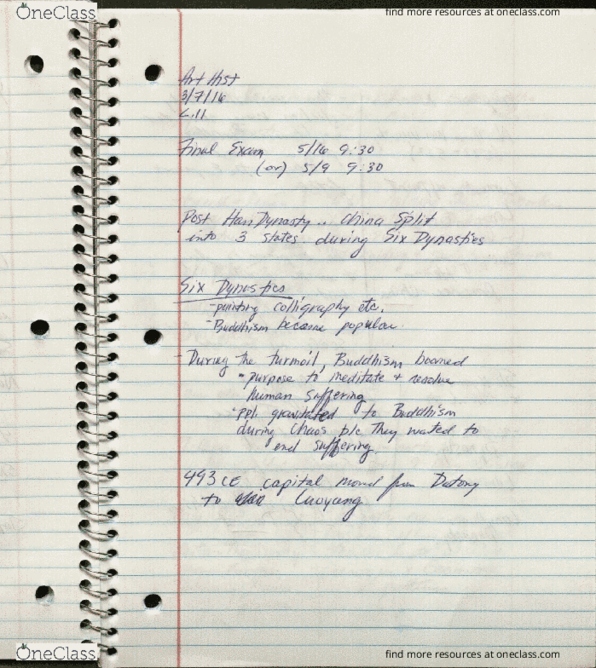 OneClass
find more resources at oneclass.com
Art Hist
3/7/16
Final Exam 5/16 9:30
(or) 5/9 9:30
Post Han Dynasty.. China Split
into 3 states during Six Dynasties
Six Dynasties
-painting colligraphy etc.
-Buddhism became popular
- During the turmoil, Buddhism boomed
- purpose to meditate + resolve
human suffering
- ppl gravitated to Buddhism
during chaos b/c they wated to
end suffering.
493 CE capital moved from Datong
to Luoyang
OneClass
find more resources at oneclass.com